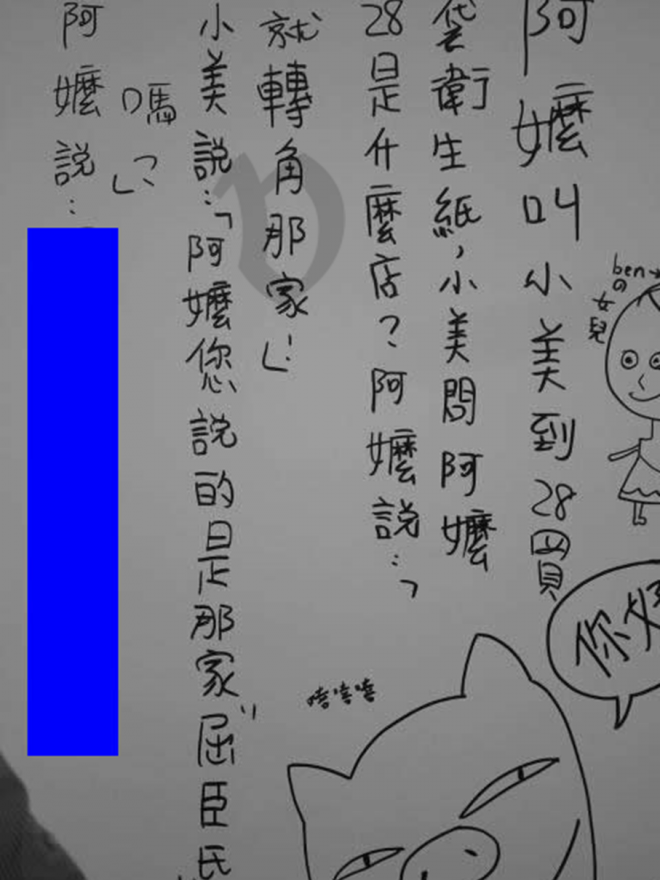 阿嬤叫小美到28買
袋衛生紙，小美問阿嬤
28是什麼店？阿嬤說：「
就轉角那家！」
小美說：「阿嬤您說的是那家"屈臣氏"
嗎？」
阿嬤說：「
benの女兒
嘻嘻嘻